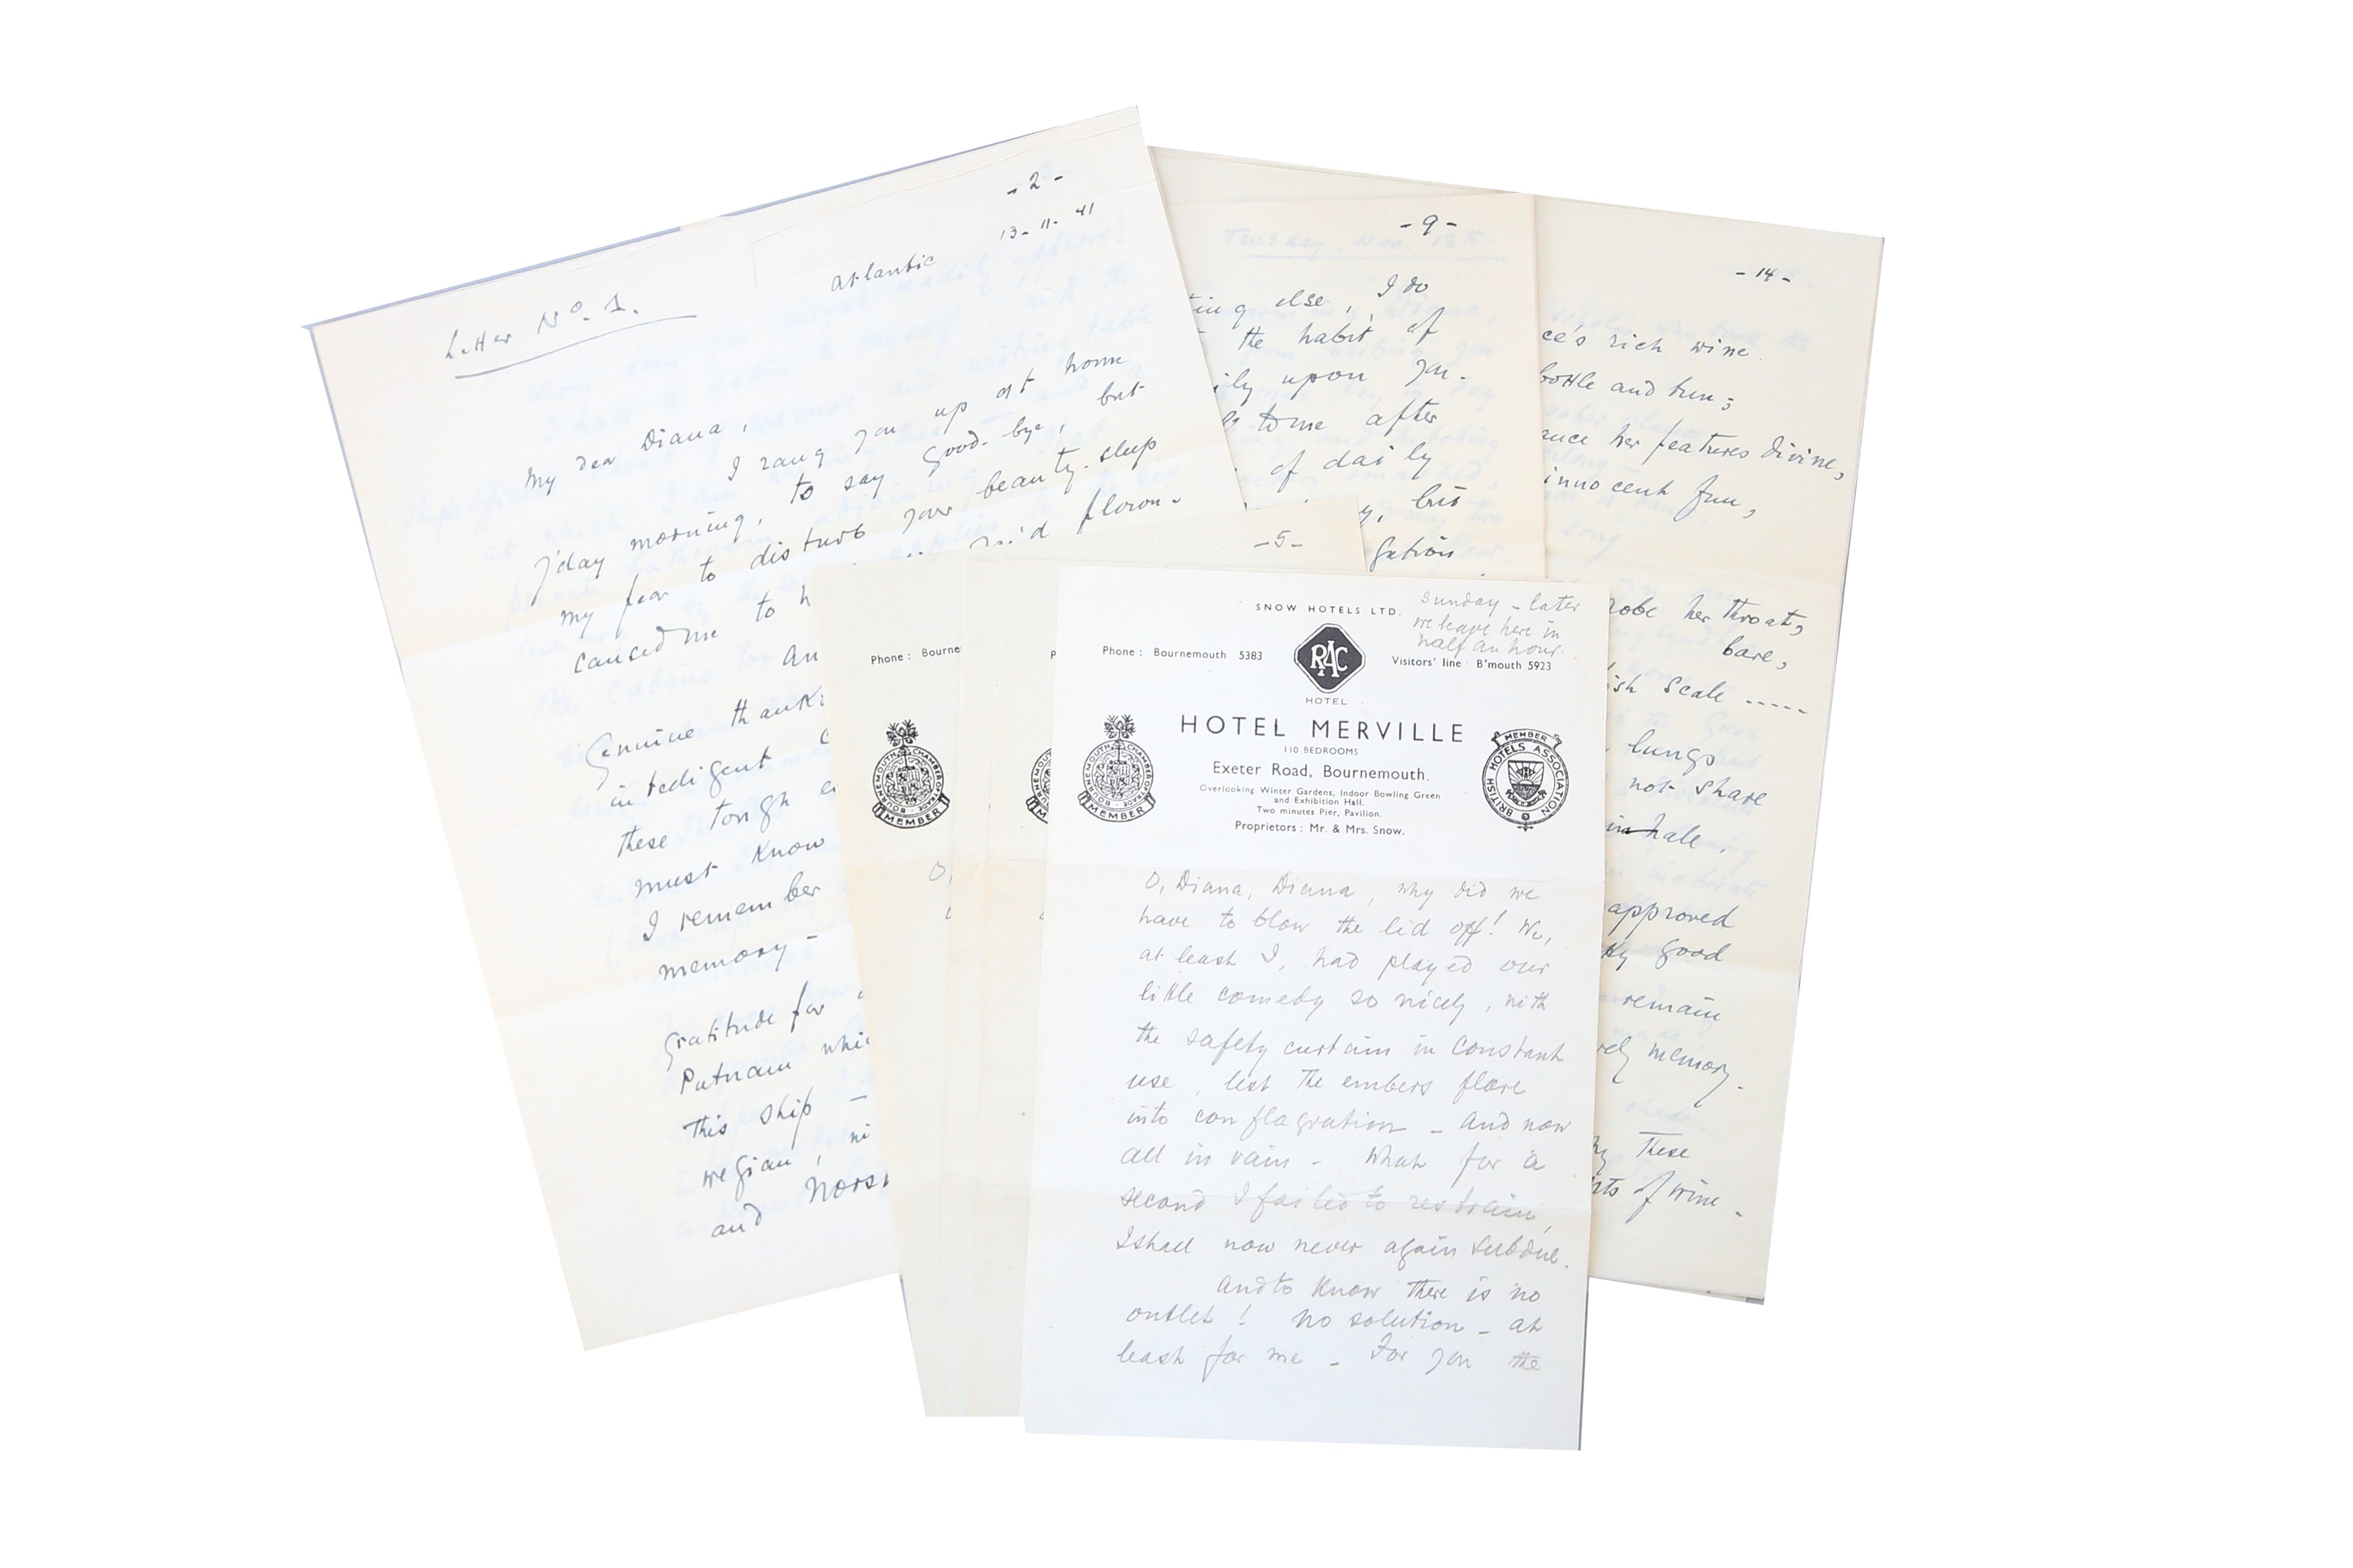 - 2 -
13- 11- 41
Atlantic
Letter No. 1.
My dear Diana,
I rang you up at home
y'day morning, to say good-bye, but
my fear to disturb your beauty-sleep
caused me to h
Genuine thanks
intelligent
these tough
must know
I remember
memory -
Gratitude for
Putnam whic
this ship -
wegian, wi
and Norsk
- 9 -
Tuesday. Nov. 18th.
ting else, I do
the habit of
ily upon you.
to me after
of daily
y, but
gation
- 14 -
ce's rich wine.
bottle and tun;
ance her features divine,
innocent fun,
robe her throat,
bare,
ish scale -----
lungs
not share
inhale,
approved
ky good
remain
rely memory.
these
nts of wine -
- 5 -
Phone: Bourne
BOURNEMOUTH CHAMBER OF TRADE
MEMBER
O,
P
SNOW HOTELS LTD.
Sunday - later
we leave here in
half an hour.
Phone: Bournemouth 5383
RAC
HOTEL
Visitors' line: B'mouth 5923
HOTEL MERVILLE
110 BEDROOMS
Exeter Road, Bournemouth.
Overlooking Winter Gardens, Indoor Bowling Green
and Exhibition Hall.
Two minutes Pier, Pavilion.
Proprietors: Mr. & Mrs. Snow.
BOURNEMOUTH CHAMBER OF TRADE
MEMBER
MEMBER
BRITISH HOTELS ASSOCIATION
O, Diana, Diana, why did we
have to blow the lid off! We,
at least I, had played our
little comedy so nicely, with
the safety curtain in constant
use, lest the embers flare
into conflagration - And now
all in vain - What for a
second I failed to restrain,
I shall now never again subdue.
And to know there is no
outlet! No solution - at
least for me - For you the